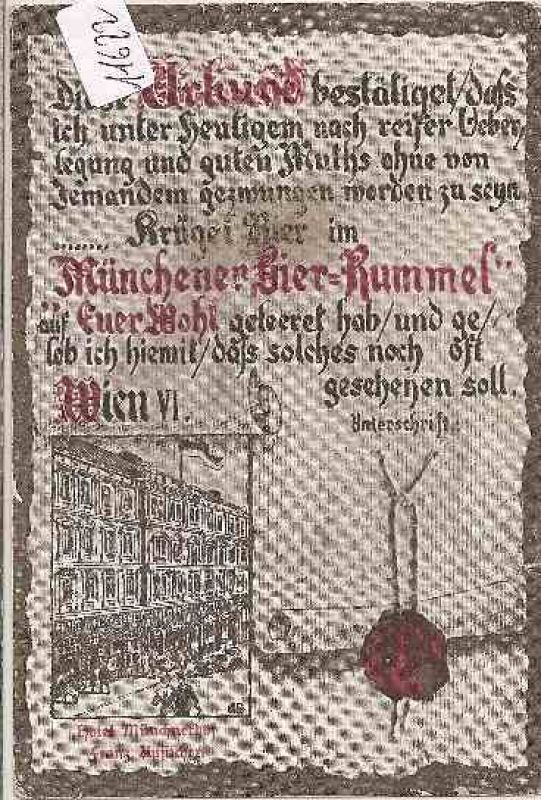 22911
Diese Urkunde bestätiget/dass
ich unter Heutigem nach reifer Ueber,
legung und guten Muths ohne von
Jemandem gezwungen worden zu seyn
........ Krügel Bier im
"Münchener Bier=Rummel"
auf Euer Wohl geleeret hab/und ge/-
lob ich hiemit/dass solches noch oft
geschehen soll.
Wien VI.
Unterschrift:
Hotel
Franz